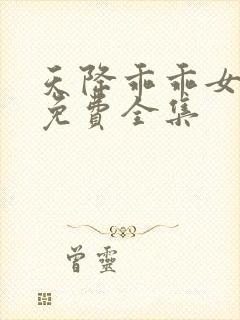 天降乖乖女
免費全集
曾靈